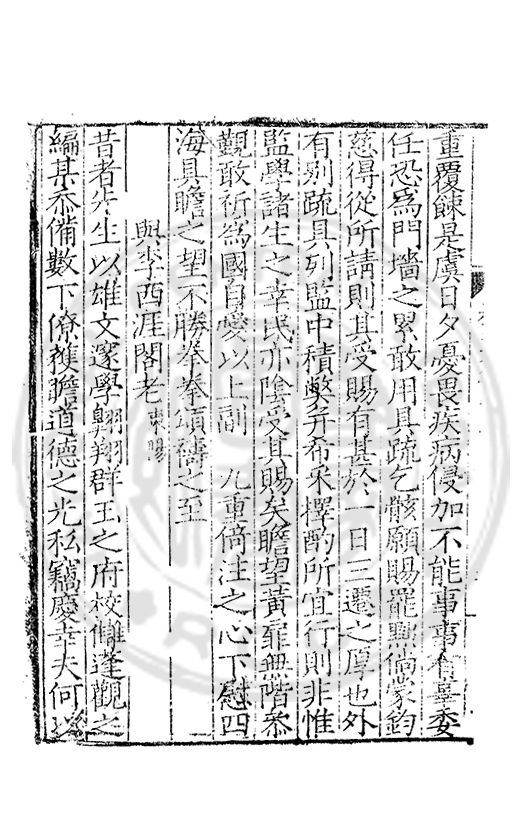 重覆餗是虞日夕憂畏疾病侵加不能事事有辜委
任恐為門墻之累敢用具疏乞骸願賜罷黜倘蒙鈞
慈得從所請則其受賜有甚於一日三遷之厚也外
有別疏具列監中積弊并希采擇酌所宜行則非惟
監學諸生之幸民亦陰受其賜矣瞻望黃扉無階恭
覲敢祈為國自愛以上副 九重倚注之心下慰四
海具瞻之望不勝拳拳頌禱之至
與李西涯閣老東陽
昔者先生以雄文邃學翱翔群玉之府校讎蓬觀之
編某忝備數下僚獲瞻道德之光私竊慶幸夫何以